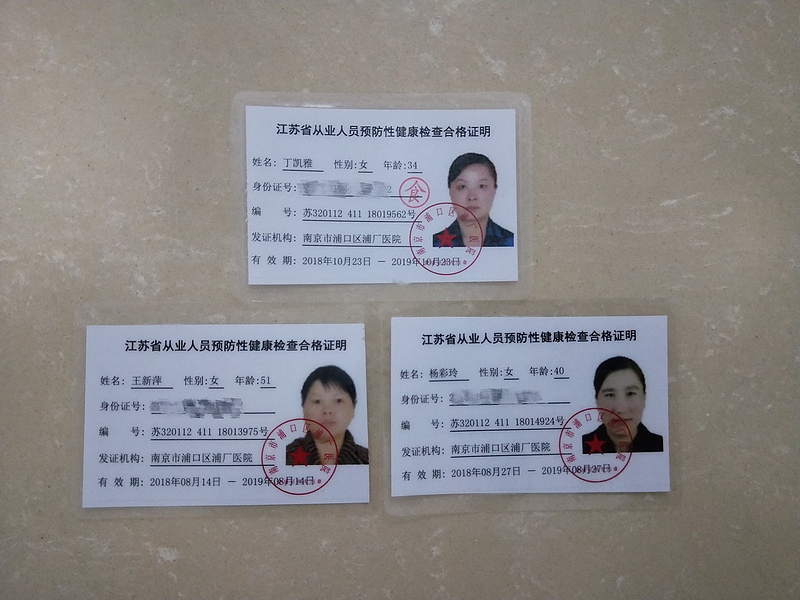 江苏省从业人员预防性健康检查合格证明
姓名：丁凯雅 性别：女 年龄：34
身份证号： 2
食
编 号：苏320112 411 18019562号
发证机构：南京市浦口区浦厂医院
有 效 期：2018年10月23日 － 2019年10月23日
南京市浦口区浦厂医院
江苏省从业人员预防性健康检查合格证明
姓名：王新萍 性别：女 年龄：51
身份证号：
编 号：苏320112 411 18013975号
发证机构：南京市浦口区浦厂医院
有 效 期：2018年08月14日 － 2019年08月14日
南京市浦口区浦厂医院
江苏省从业人员预防性健康检查合格证明
姓名：杨彩玲 性别：女 年龄：40
身份证号：
编 号：苏320112 411 18014924号
发证机构：南京市浦口区浦厂医院
有 效 期：2018年08月27日 － 2019年08月27日
南京市浦口区浦厂医院